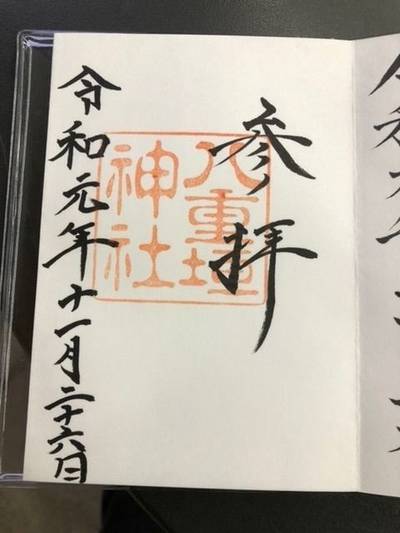 参拝
八重垣
神社
令和元年十一月二十六日